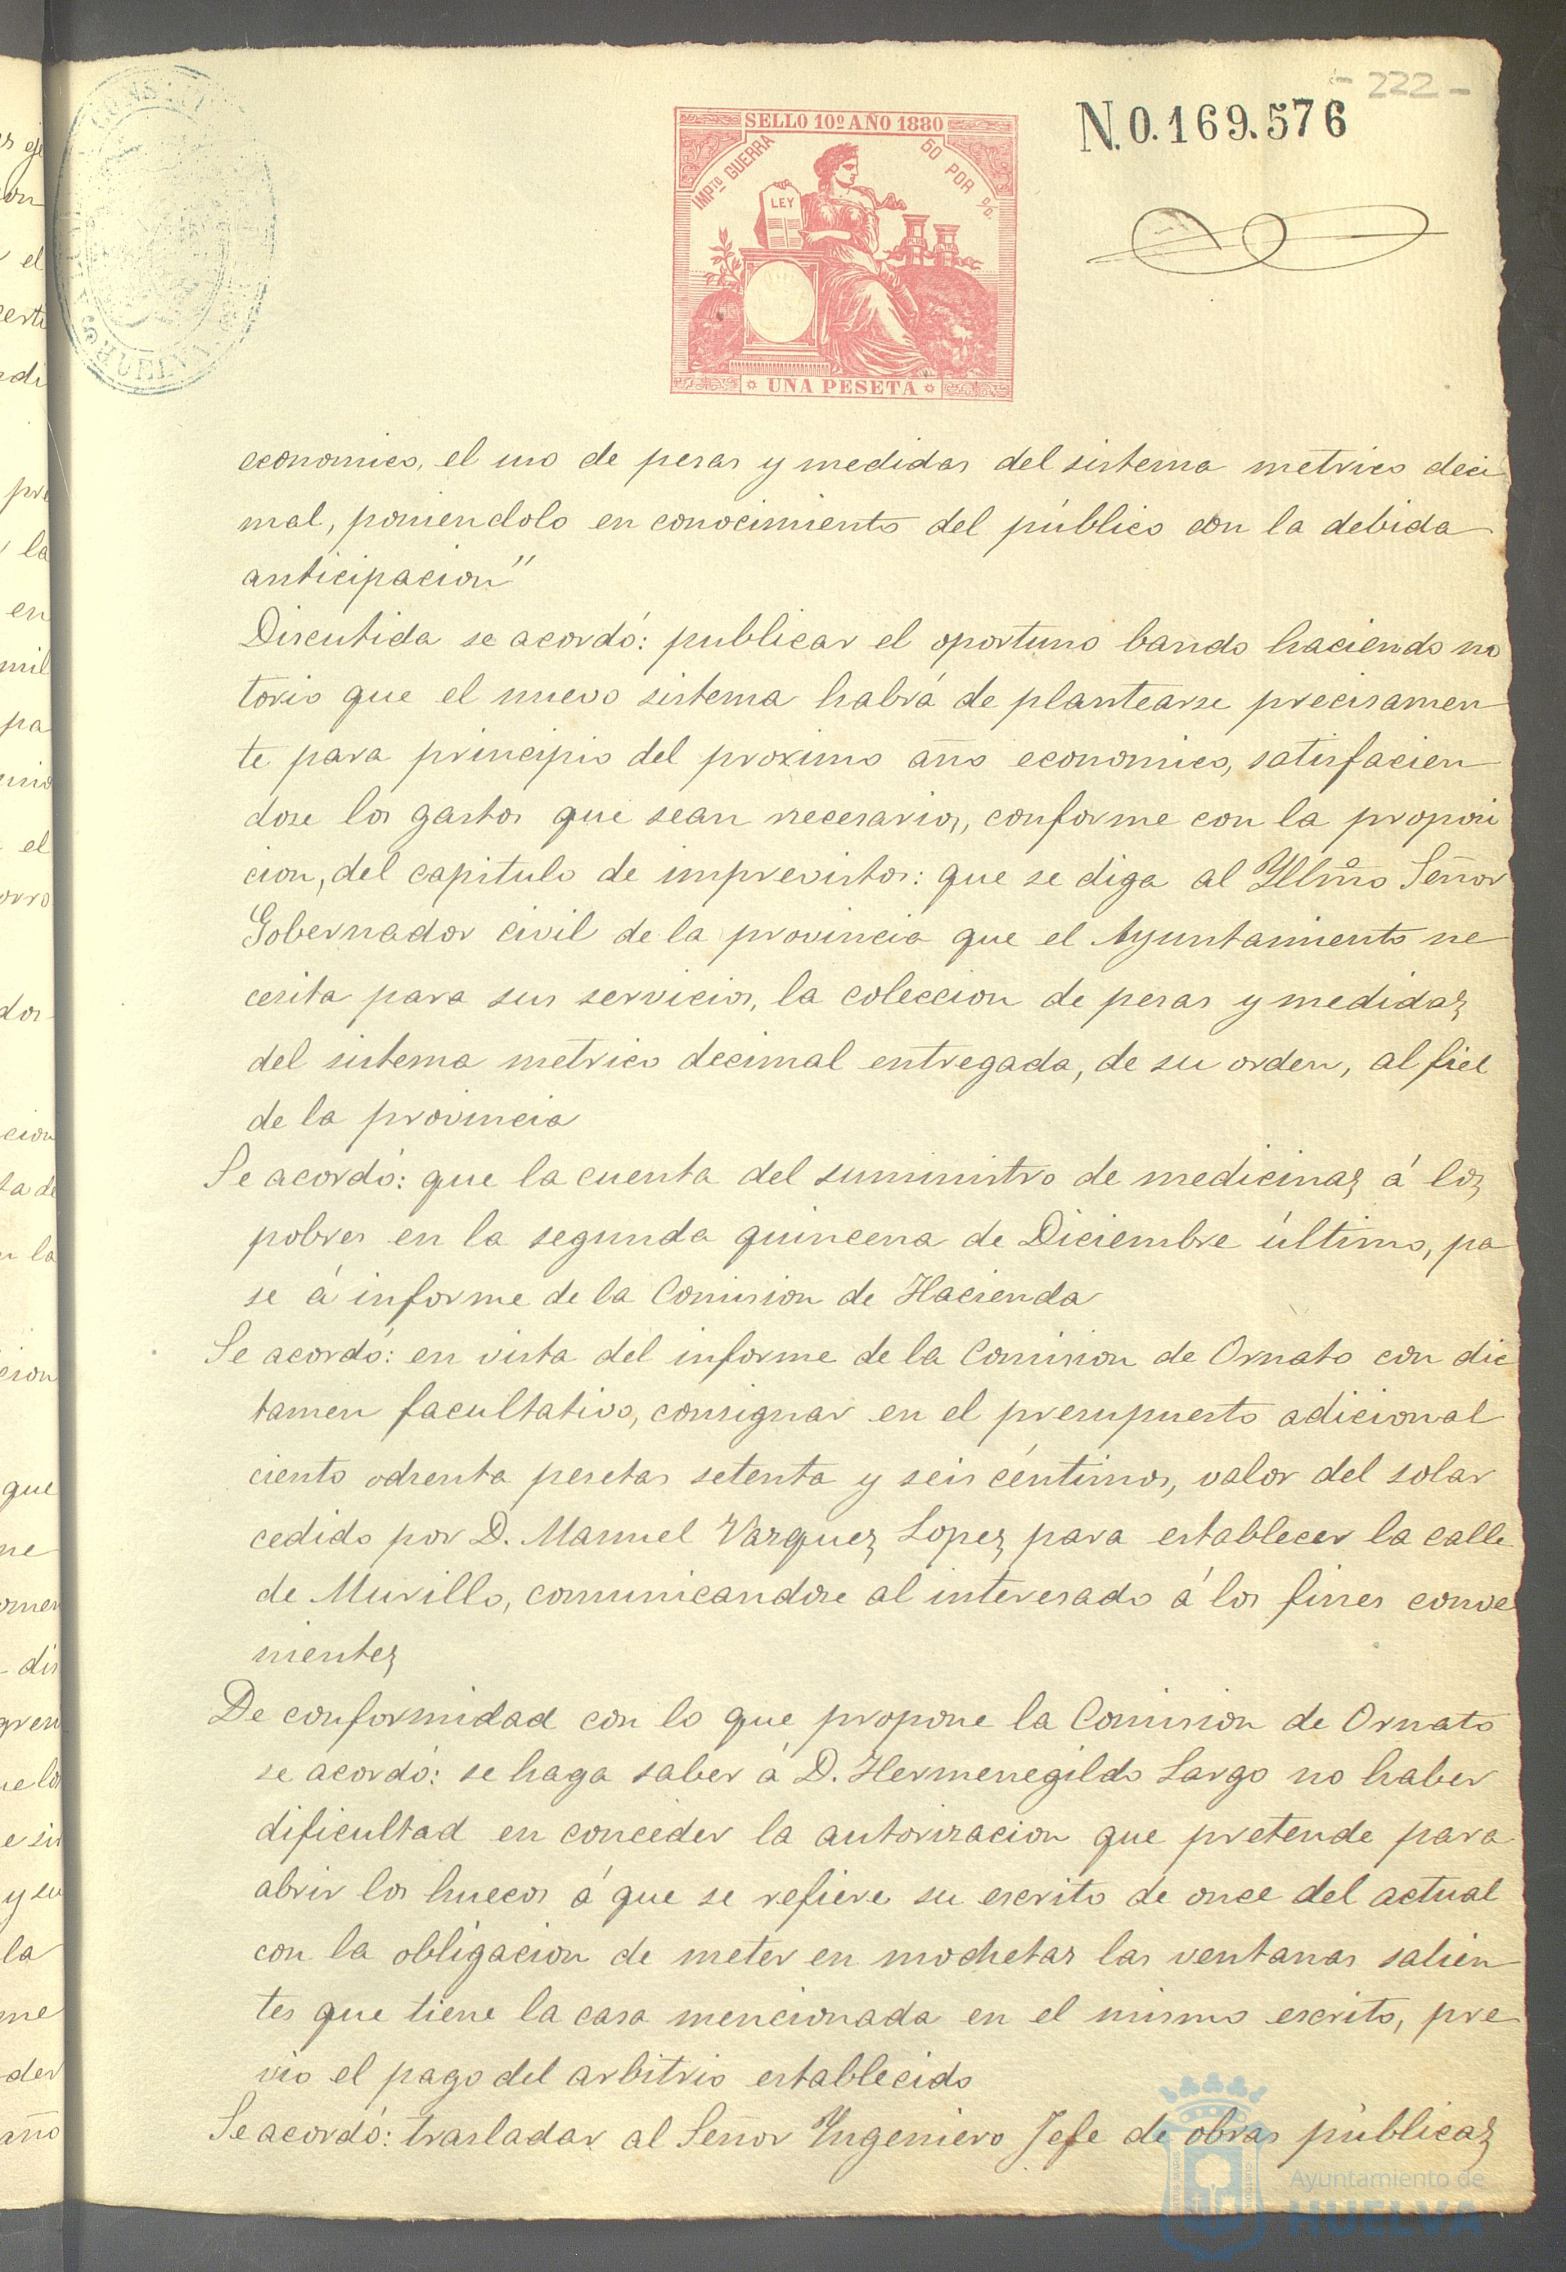 - 222 -
N.0.169.576
SELLO 10º AÑO 1880
IMPTO GUERRA 50 POR %
LEY
UNA PESETA
HUELVA
economico, el uso de pesas y medidas del sistema metrico deci
mal, poniendolo en conocimiento del público con la debida
anticipacion"
Discutida se acordó: publicar el oportuno bando haciendo no
torio que el nuevo sistema habrá de plantearse precisamen
te para principio del proximo año economico, satisfacien
dose los gastos que sean necesarios, conforme con la proposi
cion, del capitulo de imprevistos: que se diga al Yllmo Señor
Gobernador civil de la provincia que el Ayuntamiento ne
cesita para sus servicios, la coleccion de pesas y medidas
del sistema metrico decimal entregada, de su orden, al fiel
de la provincia
Se acordó: que la cuenta del suministro de medicinas á los
pobres en la segunda quincena de Diciembre último, pa
se á informe de la Comision de Hacienda
Se acordó: en vista del informe de la Comision de Ornato con dic
tamen facultativo, consignar en el presupuesto adicional
ciento ochenta pesetas setenta y seis céntimos, valor del solar
cedido por D. Manuel Vazquez Lopez para establecer la calle
de Murillo, comunicandose al interesado á los fines conve
nientes
De conformidad con lo que propone la Comision de Ornato
se acordó: se haga saber á D. Hermenegildo Largo no haber
dificultad en conceder la autorizacion que pretende para
abrir los huecos á que se refiere su escrito de once del actual
con la obligacion de meter en mochetas las ventanas salien
tes que tiene la casa mencionada en el mismo escrito, pre
vio el pago del arbitrio establecido
Se acordó: trasladar al Señor Yngeniero Jefe de obras públicas
Ayuntamiento de
HUELVA